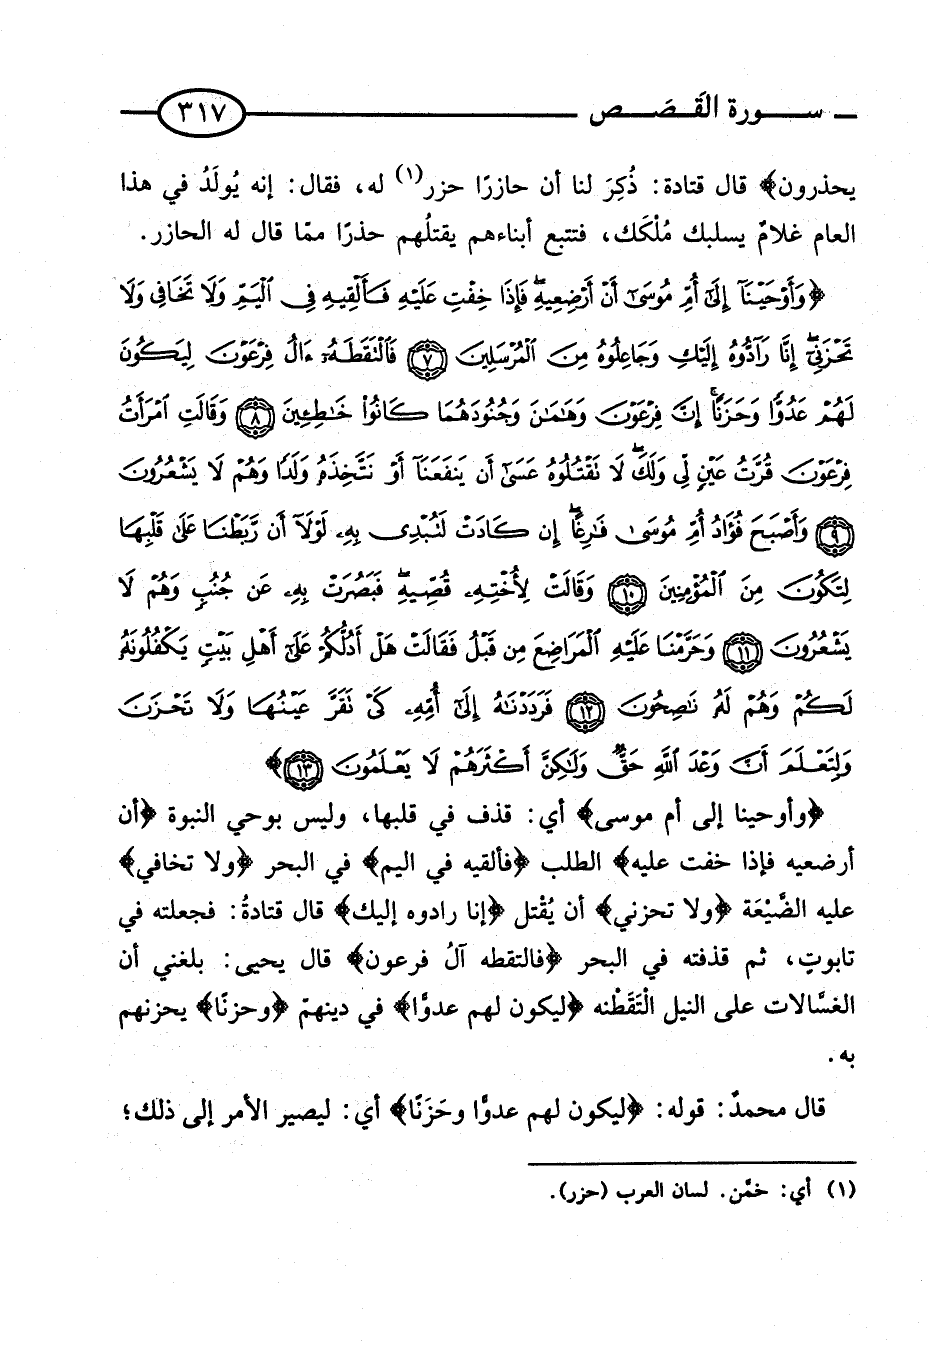 سورة القَصَص ٣١٧
يحذرون﴾ قال قتادة: ذُكِرَ لنا أن حازرًا حزر(١) له، فقال: إنه يُولَدُ في هذا
العام غلامٌ يسلبك مُلْكَك، فتتبع أبناءهم يقتلُهم حذرًا ممّا قال له الحازر.
﴿وَأَوْحَيْنَآ إِلَىٰٓ أُمِّ مُوسَىٰٓ أَنْ أَرْضِعِيهِ ۖ فَإِذَا خِفْتِ عَلَيْهِ فَأَلْقِيهِ فِى ٱلْيَمِّ وَلَا تَخَافِى وَلَا
تَحْزَنِىٓ ۖ إِنَّا رَآدُّوهُ إِلَيْكِ وَجَاعِلُوهُ مِنَ ٱلْمُرْسَلِينَ ﴿٧﴾ فَٱلْتَقَطَهُۥٓ ءَالُ فِرْعَوْنَ لِيَكُونَ
لَهُمْ عَدُوًّا وَحَزَنًا ۗ إِنَّ فِرْعَوْنَ وَهَٰمَٰنَ وَجُنُودَهُمَا كَانُوا۟ خَٰطِـِٔينَ ﴿٨﴾ وَقَالَتِ ٱمْرَأَتُ
فِرْعَوْنَ قُرَّتُ عَيْنٍ لِّى وَلَكَ ۖ لَا تَقْتُلُوهُ عَسَىٰٓ أَن يَنفَعَنَآ أَوْ نَتَّخِذَهُۥ وَلَدًا وَهُمْ لَا يَشْعُرُونَ
﴿٩﴾ وَأَصْبَحَ فُؤَادُ أُمِّ مُوسَىٰ فَٰرِغًا ۖ إِن كَادَتْ لَتُبْدِى بِهِۦ لَوْلَآ أَن رَّبَطْنَا عَلَىٰ قَلْبِهَا
لِتَكُونَ مِنَ ٱلْمُؤْمِنِينَ ﴿١٠﴾ وَقَالَتْ لِأُخْتِهِۦ قُصِّيهِ ۖ فَبَصُرَتْ بِهِۦ عَن جُنُبٍ وَهُمْ لَا
يَشْعُرُونَ ﴿١١﴾ وَحَرَّمْنَا عَلَيْهِ ٱلْمَرَاضِعَ مِن قَبْلُ فَقَالَتْ هَلْ أَدُلُّكُمْ عَلَىٰٓ أَهْلِ بَيْتٍ يَكْفُلُونَهُۥ
لَكُمْ وَهُمْ لَهُۥ نَٰصِحُونَ ﴿١٢﴾ فَرَدَدْنَٰهُ إِلَىٰٓ أُمِّهِۦ كَىْ تَقَرَّ عَيْنُهَا وَلَا تَحْزَنَ
وَلِتَعْلَمَ أَنَّ وَعْدَ ٱللَّهِ حَقٌّ وَلَٰكِنَّ أَكْثَرَهُمْ لَا يَعْلَمُونَ ﴿١٣﴾﴾
﴿وأوحينا إلى أم موسى﴾ أي: قذف في قلبها، وليس بوحي النبوة ﴿أن
أرضعيه فإذا خفت عليه﴾ الطلب ﴿فألقيه في اليم﴾ في البحر ﴿ولا تخافي﴾
عليه الضَّيْعَة ﴿ولا تحزني﴾ أن يُقْتل ﴿إنا رادوه إليك﴾ قال قتادةُ: فجعلته في
تابوتٍ، ثم قذفته في البحر ﴿فالتقطه آلُ فرعون﴾ قال يحيى: بلغني أن
الغسَّالات على النيل الْتَقَطْنه ﴿ليكون لهم عدوًّا﴾ في دينهمّ ﴿وحزنًا﴾ يحزنهم
به.
قال محمدٌ: قوله: ﴿ليكون لهم عدوًّا وحَزَنًا﴾ أي: ليصير الأمر إلى ذلك؛
(١) أي: خمَّن. لسان العرب (حزر).